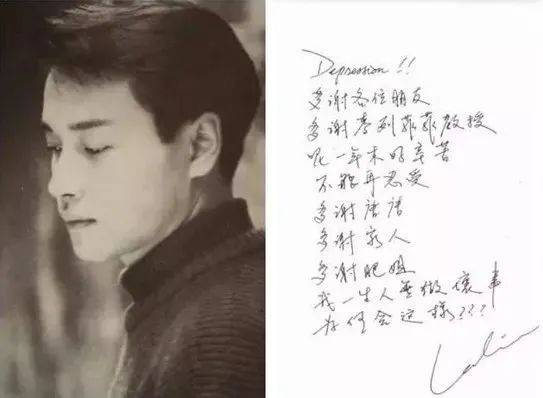 Depression!!
多謝各位朋友
多謝麥列菲菲教授
呢一年來的辛苦
不能再忍受
多謝唐唐
多謝家人
多謝肥姐
我一生人無做壞事
為何會這樣???
Leslie